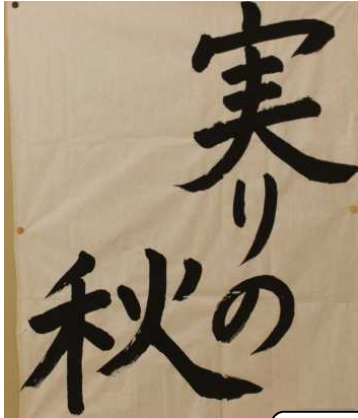 実りの
秋